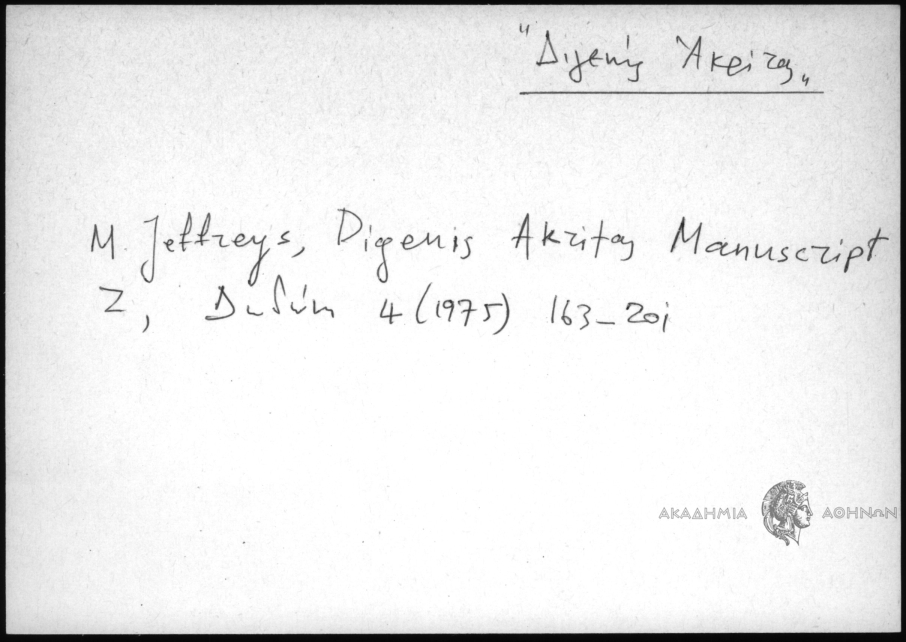 "Διγενής Ἀκρίτας"
M. Jeffreys, Digenis Akritas Manuscript
Z, Δωδώνη 4 (1975) 163-201
ΑΚΑΔΗΜΙΑ ΑΘΗΝΩΝ